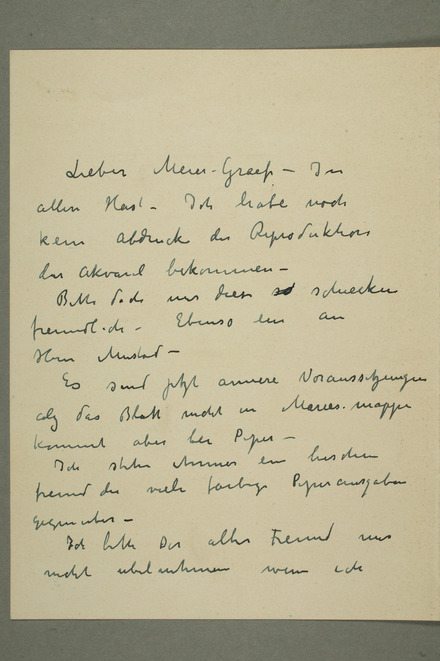 Lieber Meier-Graefe – In
aller Hast – Ich habe noch
kein Abdruck der Reproduktion
des Akvarel bekommen –
Bitte doch mir diese zu schicken
freundlich – Ebenso ein an
Herr Mustad –
Es sind jetzt andere Voraussetzungen
das Blatt nicht in Marees-mappe
kommt aber bei Piper –
Ich stehe immer ein bischen
fremd die viele farbige Piperausgaben
gegenuber –
Ich bitte Sie alter Freund mir
nicht ubelnehmen wenn ich